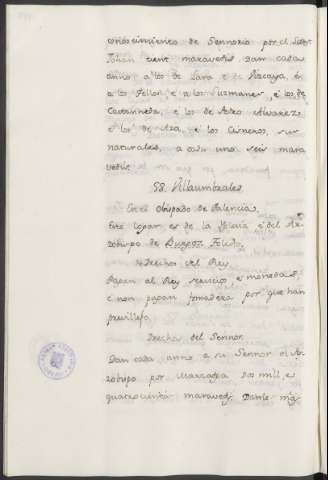 conoscimiento de Sennorio por el Sant
Johan cient maravedis. Dan cada
anno a los de Lara e de Vizcaya, é
a los Tellos e a los Guzmanes, é los de
Castanneda, é los de Alvarez
é los de Aza, é los Cisneros, sus
naturales, a cada uno seis mara
vedis.
58. Villaumbrales
En el Obispado de Palencia.
Este logar es de la Iglesia é del Ar-
zobispo de Burgos, Toledo.
Derechos del Rey
Pagan al Rey servicios, é monedas,
é non pagan fonsadera por que han
previllejo.
Derechos del Sennor
Dan cada anno a su Sennor el Ar-
zobispo por Marzazga dos mil, e
quatrocientos maraveds. Danle mas